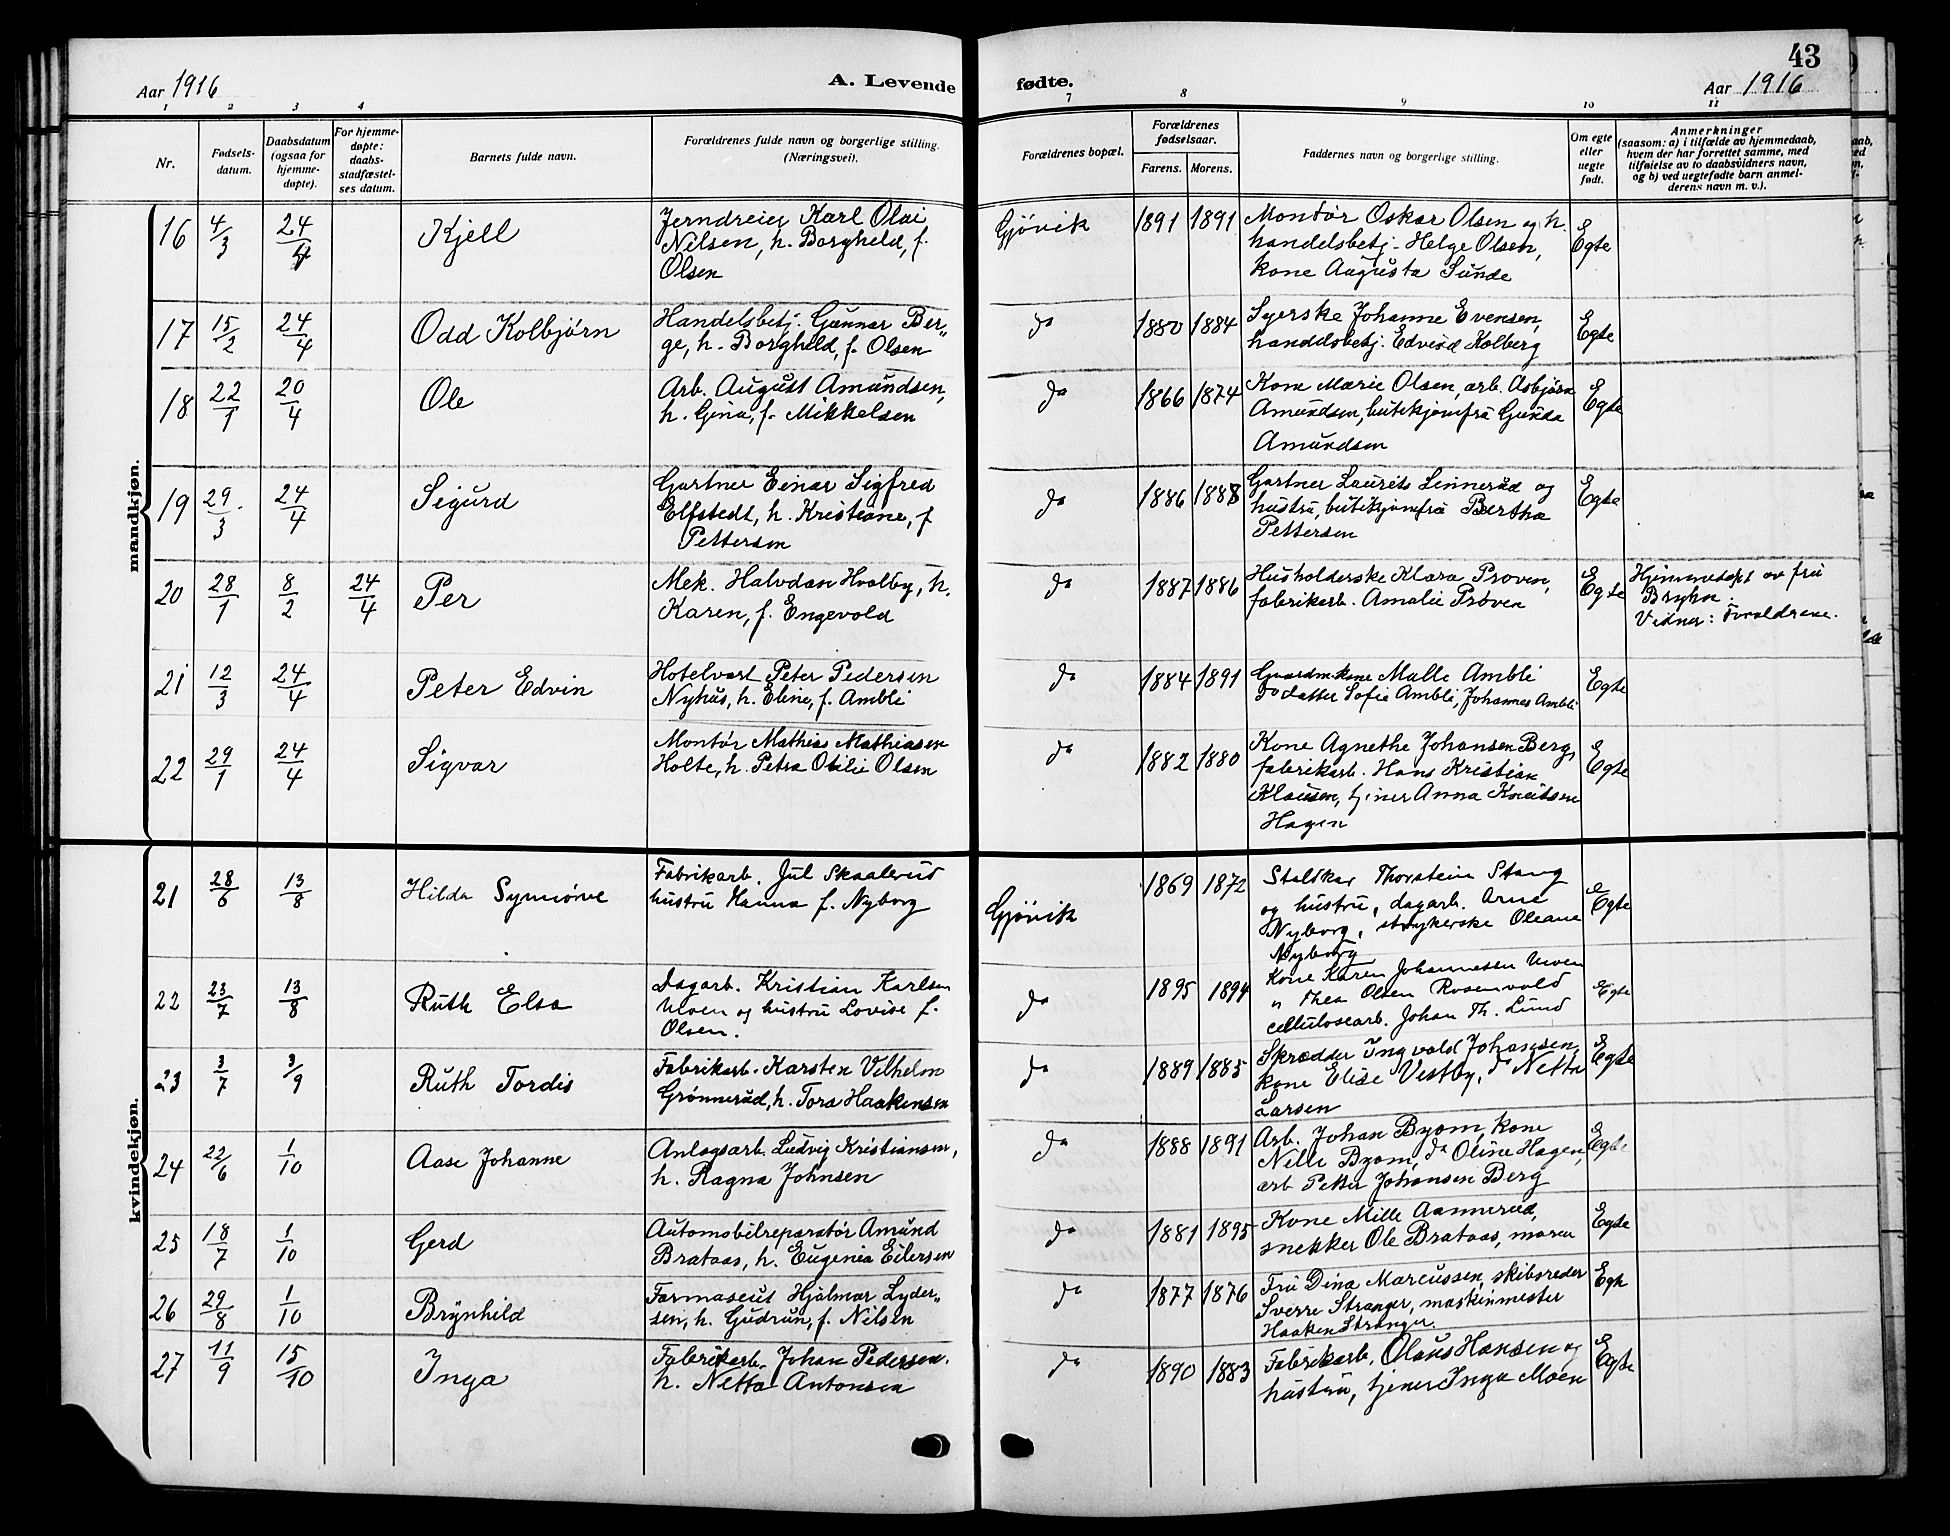 43
Aar 1916
A. Levende
fødte.
Aar 1916
1 2 3 4 7 8 9 10 11
Nr.
Fødsels-
datum.
Daabsdatum
(ogsaa for
hjemme-
døpte).
For hjemme-
døpte:
daabs-
stadfæstel-
ses datum.
Barnets fulde navn.
Forældrenes fulde navn og borgerlige stilling.
(Næringsvei).
Forældrenes bopæl.
Forældrenes
fødselsaar.
Farens. Morens.
Faddernes navn og borgerlige stilling.
Om egte
eller
uegte
født.
Anmerkninger
(saasom: a) i tilfælde av hjemmedaab,
hvem der har forrettet samme, med
tilføielse av to daabsvidners navn,
og b) ved uegtefødte barn anmel-
derens navn m. v.).
mandkjøn.
16 4/3 24/4 Kjell
Jerndreier Karl Olai
Nilsen, h. Borghild, f.
Olsen
Gjøvik 1891 1891
Montør Oskar Olsen og h.
handelsbetj. Helge Olsen,
kone Augusta Sunde
Egte
17 15/2 24/4 Odd Kolbjørn
Handelsbetj. Gunnar Ber-
ge, h. Borghild, f. Olsen
do 1880 1884
Syerske Johanne Evensen,
handelsbetj. Edvard Kolberg
Egte
18 22/1 20/4 Ole
Arb. August Amundsen,
h. Gina, f. Mikkelsen
do 1866 1874
Kone Marie Olsen, arb. Asbjørn
Amundsen, butikjomfru Gunda
Amundsen
Egte
19 29/3 24/4 Sigurd
Gartner Einar Sigfred
Elfstedt, h. Kristiane, f.
Pettersen
do 1886 1888
Gartner Laurits Linnerud og
hustru, butikjomfru Bertha
Pettersen
Egte
20 28/1 8/2 24/4 Per
Mek. Halvdan Hvalby, h.
Karen, f. Engevold
do 1887 1886
Husholderske Klara Prøven,
fabrikarb. Amalie Prøven
Egte
Hjemmedøpt av fru
Bryhn.
Vidner: Forældrene.
21 12/3 24/4 Peter Edvin
Hotelvært Peter Pedersen
Nyhus, h. Eline, f. Ambli
do 1884 1891
Gaardm.kone Malle Ambli
do datter Sofie Ambli, Johannes Ambli
Egte
22 29/1 24/4 Sigvar
Montør Mathias Mathiasen
Holte, h. Petra Otilie Olsen
do 1882 1880
Kone Agnethe Johansen Berg,
fabrikarb. Hans Kristian
Klausen, tjener Anna Knutsen
Hagen
Egte
kvindekjøn.
21 28/6 13/8 Hilda Synnøve
Fabrikarb. Jul Skaalerud
hustru Hanna f. Nyborg
Gjøvik 1869 1872
Staltkar Thorstein Stang
og hustru, dagarb. Arne
Nyborg, strykerske Oleane
Nyborg
Egte
22 23/7 13/8 Ruth Elsa
Dagarb. Kristian Karlsen
Ulven og hustru Lovise f.
Olsen.
do 1895 1894
Kone Karen Johannesen Ulven
" Thea Olsen Rosenvold
cellulosearb. Johan Th. Lund
Egte
23 3/7 3/9 Ruth Tordis
Fabrikarb. Karsten Vilhelm
Grønnerud, h. Tora Haakensen
do 1889 1885
Skrædder Ingvald Johansen,
kone Elise Vestby, do Netta
Larsen
Egte
24 22/6 1/10 Aase Johanne
Anlagsarb. Ludvig Kristiansen,
h. Ragna Johnsen
do 1888 1891
Arb. Johan Byom, kone
Nelli Byom, do Oline Hagen,
arb Petter Johansen Berg
Egte
25 18/7 1/10 Gerd
Automobilreparatør Amund
Brataas, h. Eugenia Eilersen
do 1881 1895
Kone Mille Aannerud,
snekker Ole Brataas, moren
Egte
26 29/8 1/10 Brynhild
Farmaseut Hjalmar Lyder-
sen, h. Gudrun, f. Nilsen
do 1877 1876
Fru Dina Marcussen, skibsreder
Sverre Stranger, maskinmester
Haaken Stranger.
Egte
27 11/9 15/10 Inga
Fabrikarb. Johan Pedersen.
h. Netta Antonsen
do 1890 1883
Fabrikarb. Olaus Hansen og
hustru, tjener Inga Moen
Egte